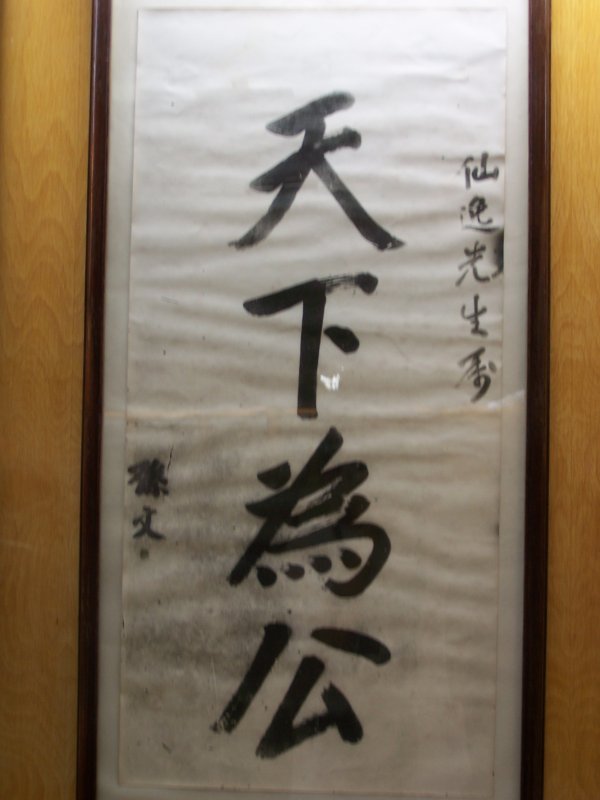 仙逸先生屬
天下為公
孫文